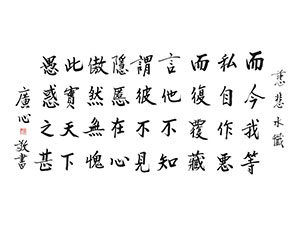 慈悲水懺
而今我等
私自作惡
而復覆藏
言他不知
謂彼不見
隱慝在心
傲然無愧
此實天下
愚惑之甚
廣心敬書